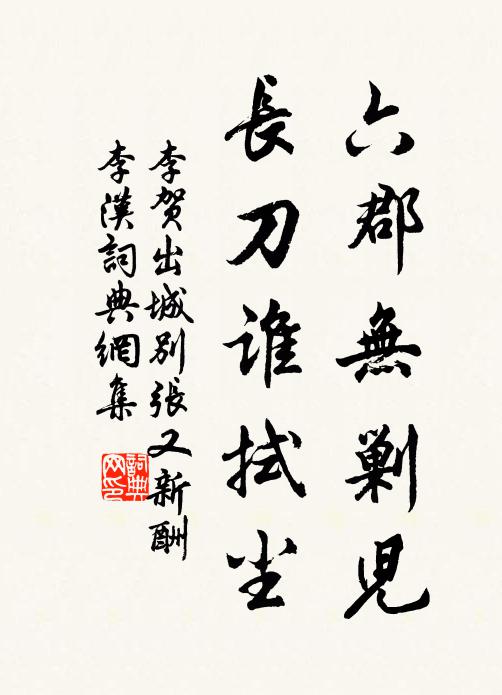 六郡無剿児
長刀谁拭尘
李贺出城别張又新酬
李漢詞典網集
詞典網印